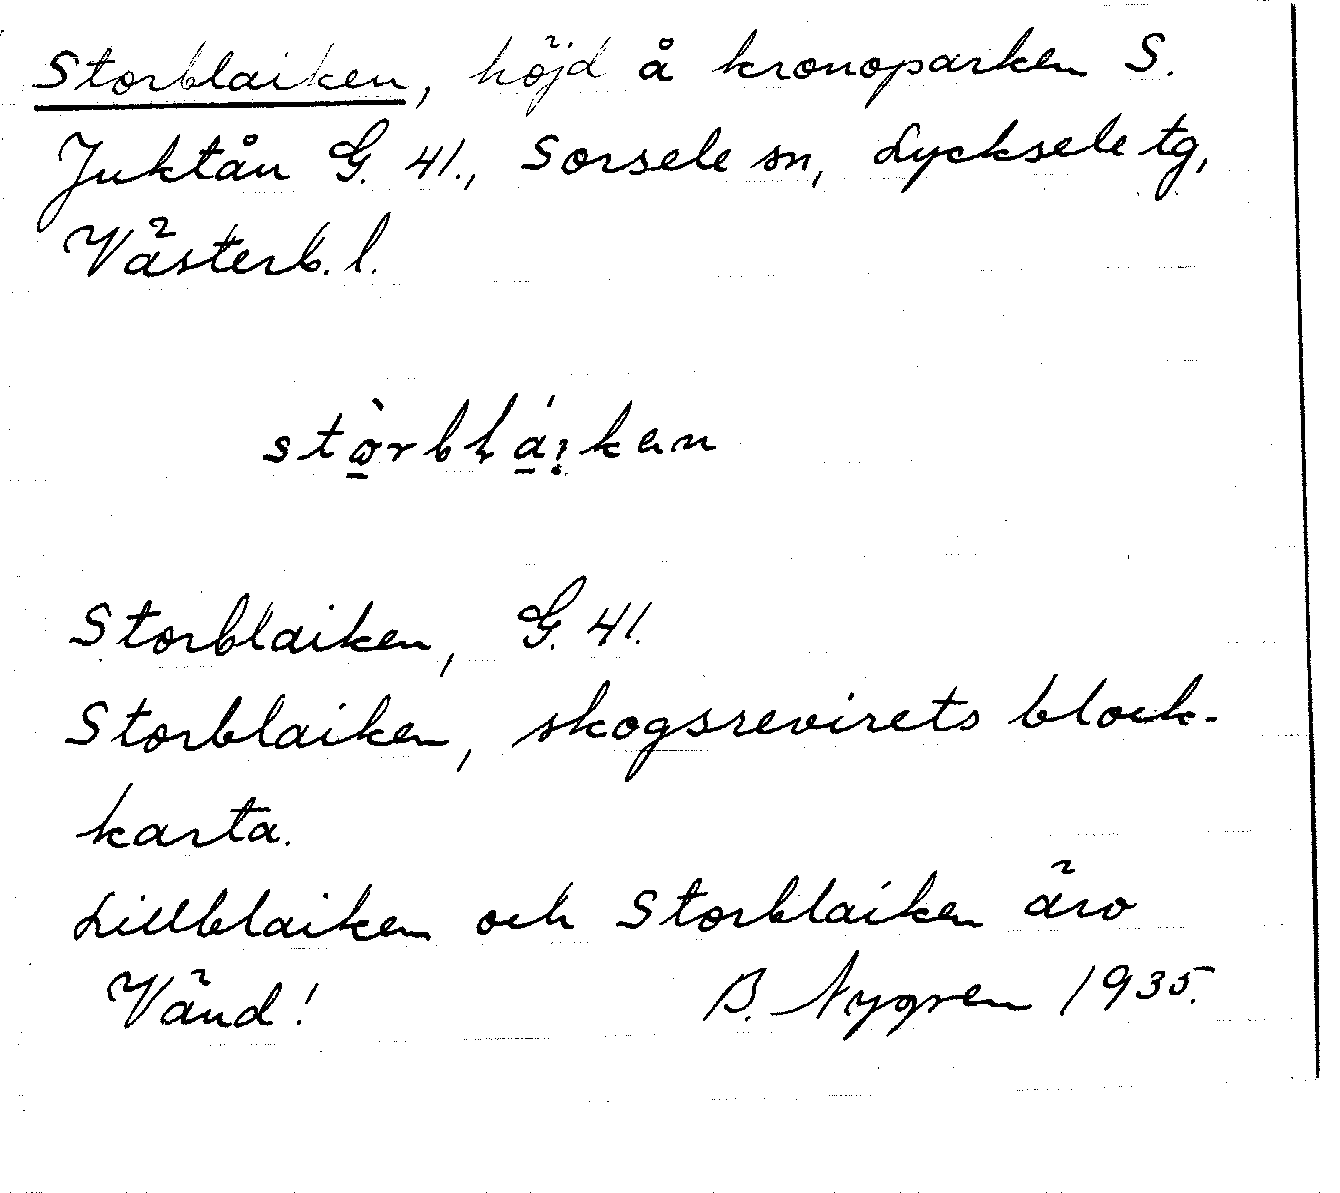 Storblaiken, höjd å kronoparken S.
Juktån G. 41., Sorsele sn, Lycksele tg,
Västerb. l.
stò̱rblá̱i̭ken
Storblaiken, G. 41.
Storblaiken, skogsrevirets block-
karta.
Lillblaiken och Storblaiken äro
Vänd! B. Nygren 1935.